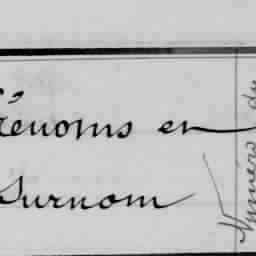 rénoms en
Surnom
Numéro du